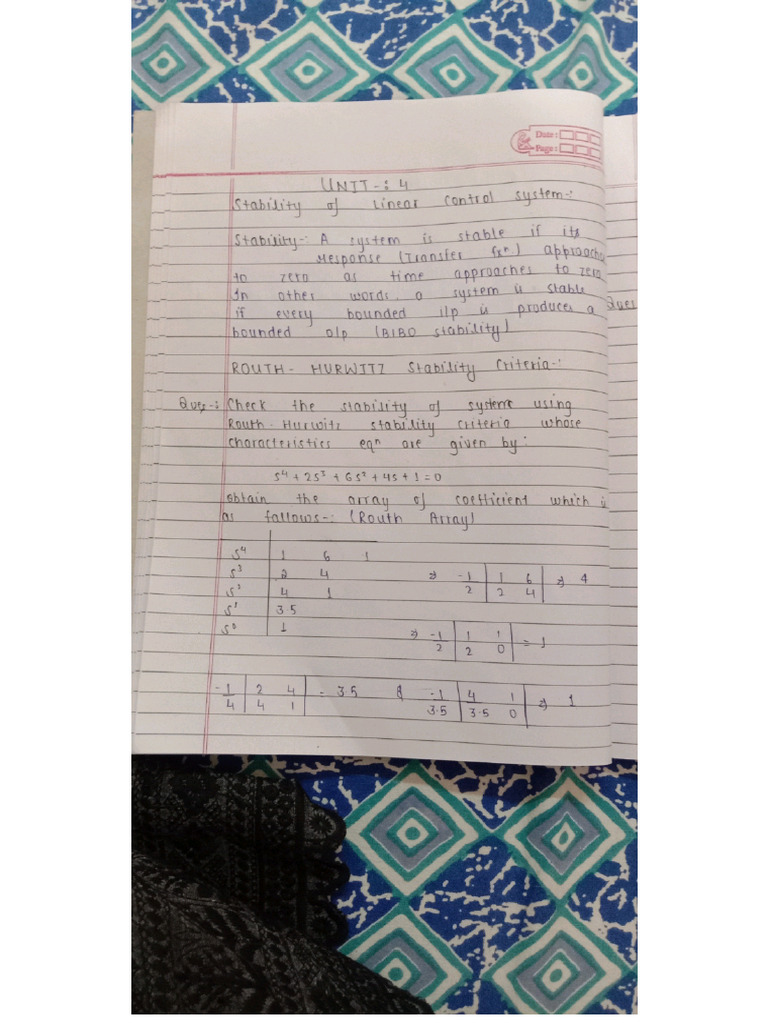 Date :
Page :
UNIT-: 4
Stability of Linear Control System-:
Stability-: A system is stable if its
response (Transfer fxⁿ.) approaches
to zero as time approaches to zero.
In other words, a system is stable
if every bounded i/p is produces a
bounded o/p (BIBO stability)
Ques
ROUTH - HURWITZ Stability Criteria-:
Ques-: Check the stability of system using
Routh-Hurwitz stability criteria whose
characteristics eqn are given by:
s⁴ + 2s³ + 6s² + 4s + 1 = 0
obtain the array of coefficient which is
as follows-: (Routh Array)
s⁴ | 1 6 1
s³ | 2 4 ⇒ -1/2 | 1 6 | ⇒ 4
s² | 4 1 | 2 4 |
s¹ | 3.5
s⁰ | 1 ⇒ -1/2 | 1 1 | = 1
| 2 0 |
-1/4 | 2 4 | = 3.5 & -1/3.5 | 4 1 | ⇒ 1
| 4 1 | | 3.5 0 |